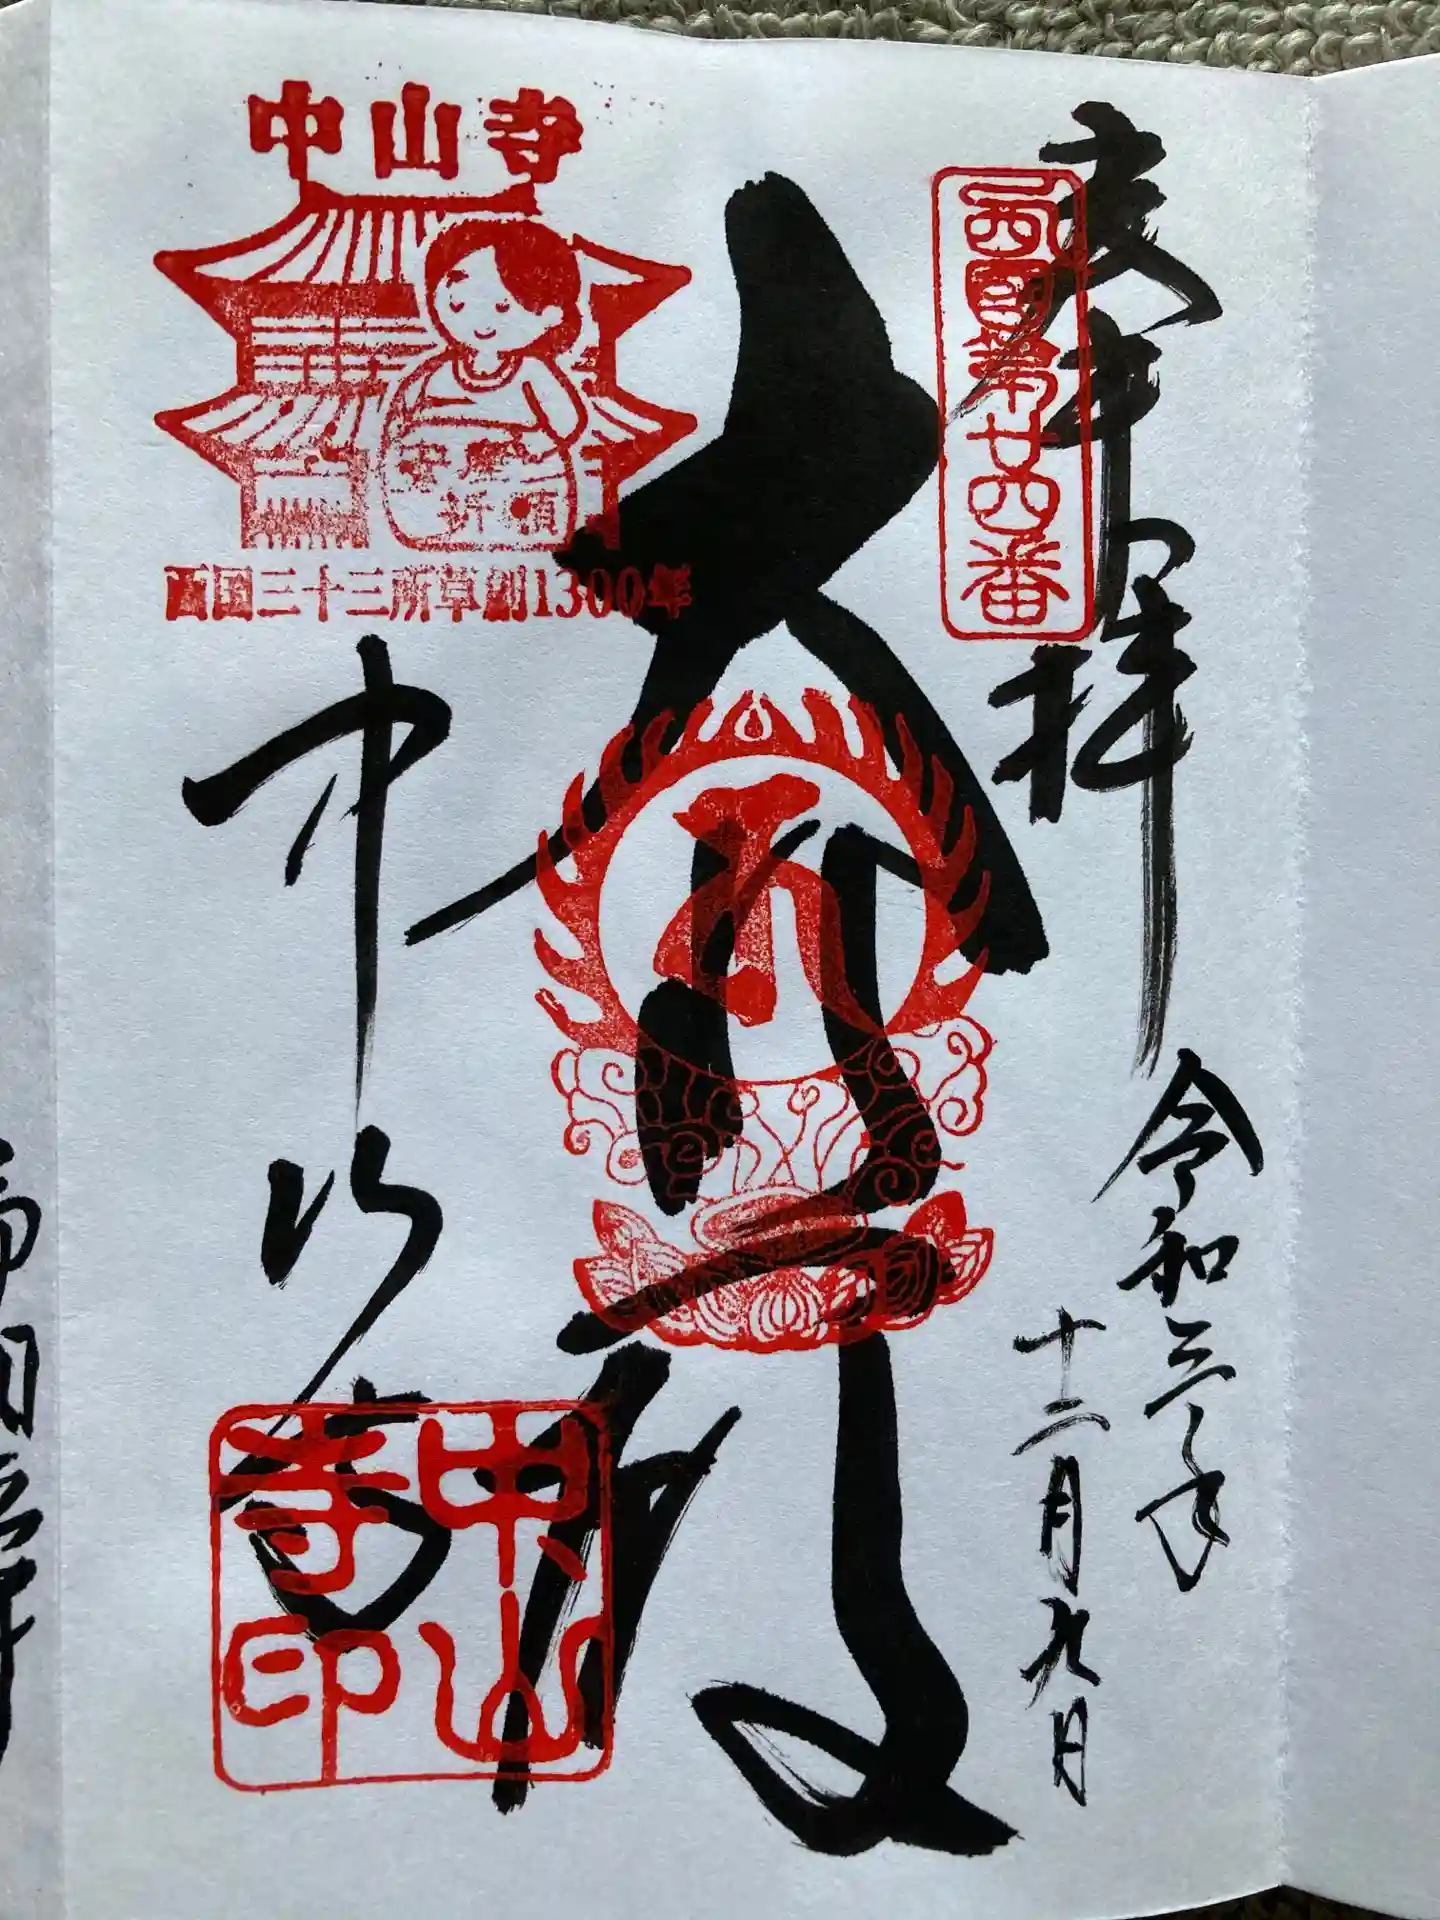 奉拝
西国第廿四番
令和三年
十二月九日
大悲殿
中山寺
安産
祈願
西国三十三所草創1300年
中山寺
中山
寺印